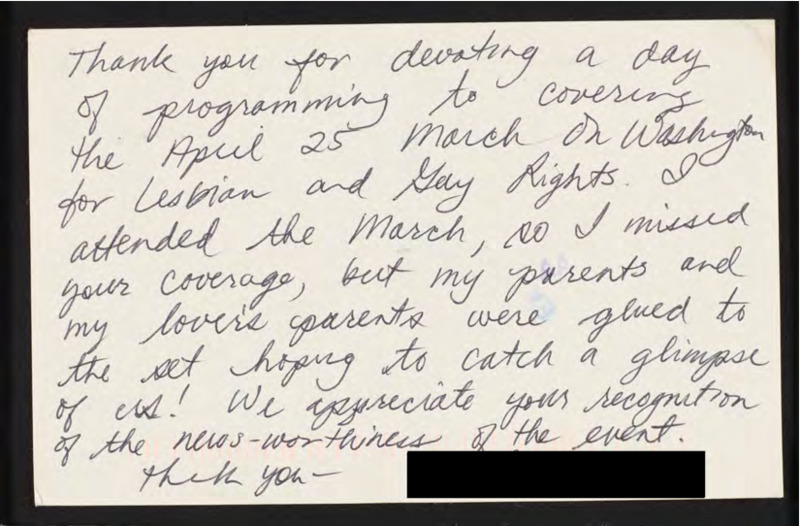 Thank you for devoting a day
of programming to covering
the April 25 March On Washington
for Lesbian and Gay Rights. I
attended the March, so I missed
your coverage, but my parents and
my lover's parents were glued to
the set hoping to catch a glimpse
of us! We appreciate your recognition
of the news-worthiness of the event.
Thank you—